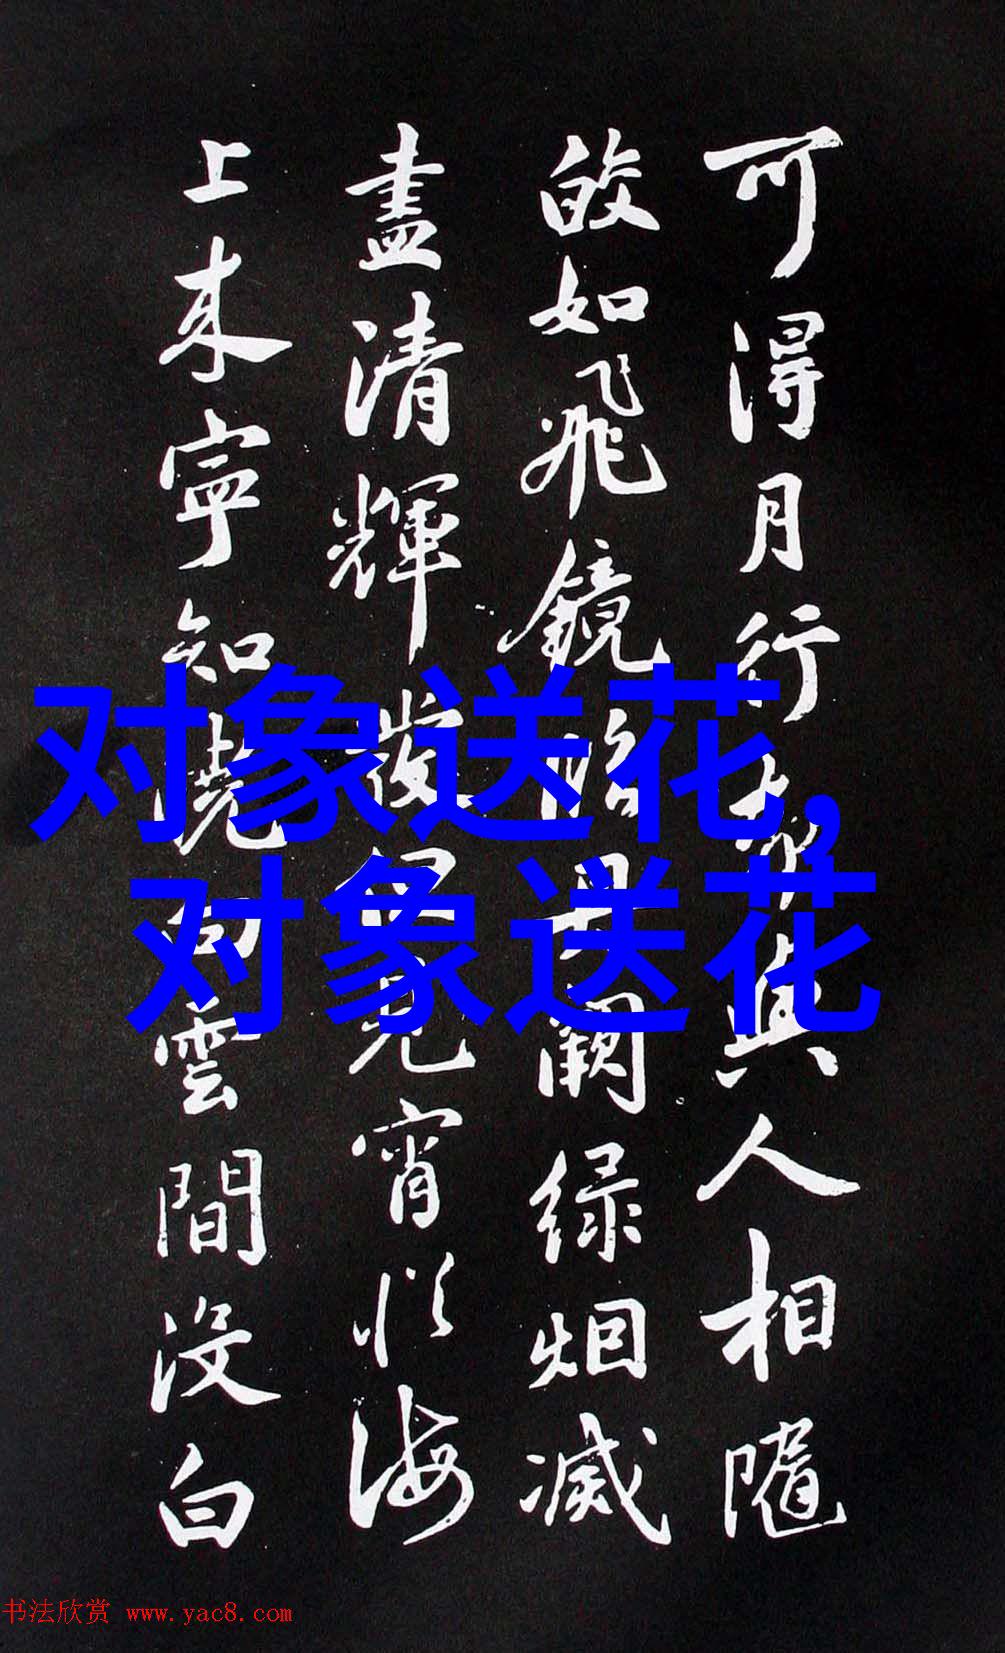 可得月行却與人相隨
皎如飛鏡臨丹闕绿烟滅
盡清輝發但見宵從海
上来寧知曉向雲間没白
对象送花,
对象送花
书法欣赏 www.yac8.com